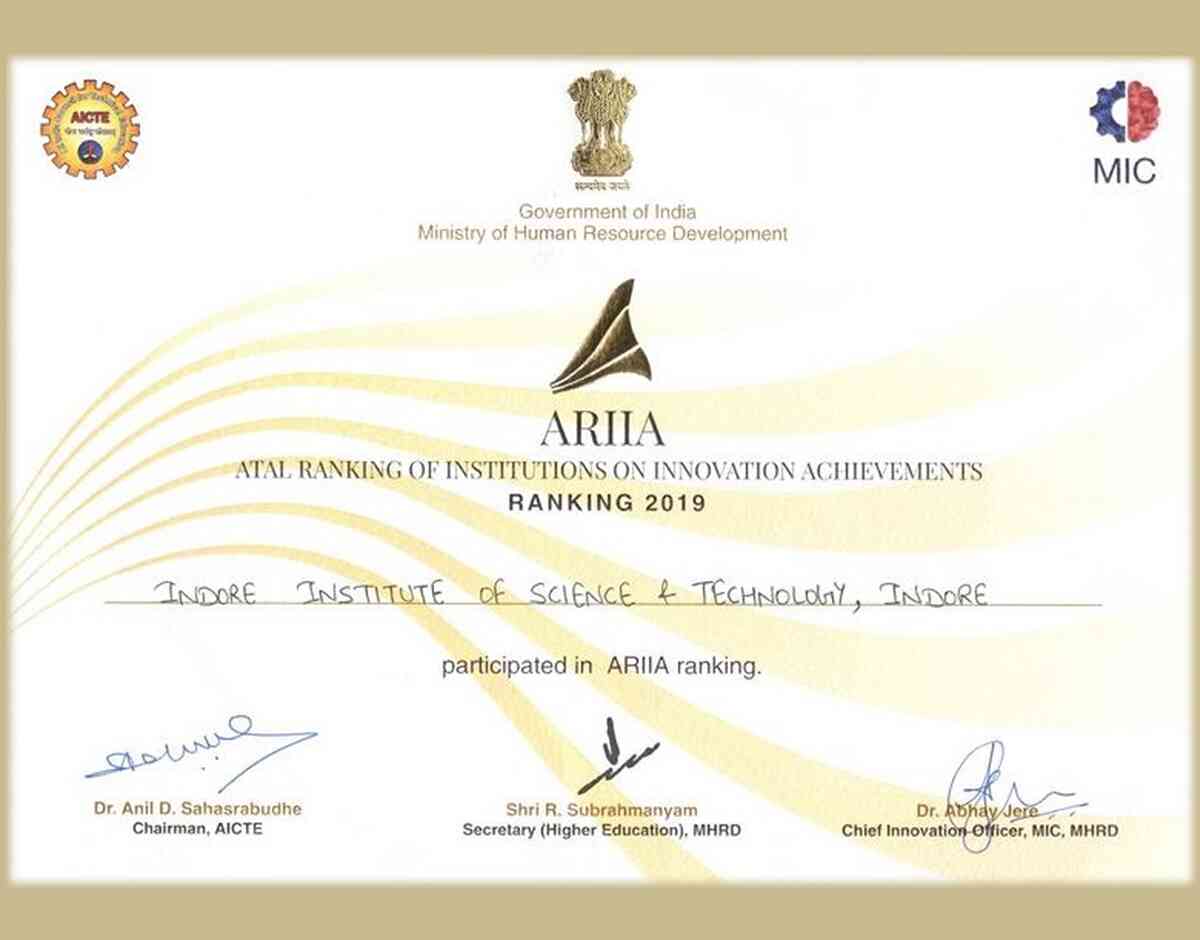 AICTE
सत्यमेव जयते
MIC
Government of India
Ministry of Human Resource Development
ARIIA
ATAL RANKING OF INSTITUTIONS ON INNOVATION ACHIEVEMENTS
RANKING 2019
INDORE INSTITUTE OF SCIENCE & TECHNOLOGY, INDORE
participated in ARIIA ranking.
Dr. Anil D. Sahasrabudhe
Chairman, AICTE
Shri R. Subrahmanyam
Secretary (Higher Education), MHRD
Dr. Abhay Jere
Chief Innovation Officer, MIC, MHRD